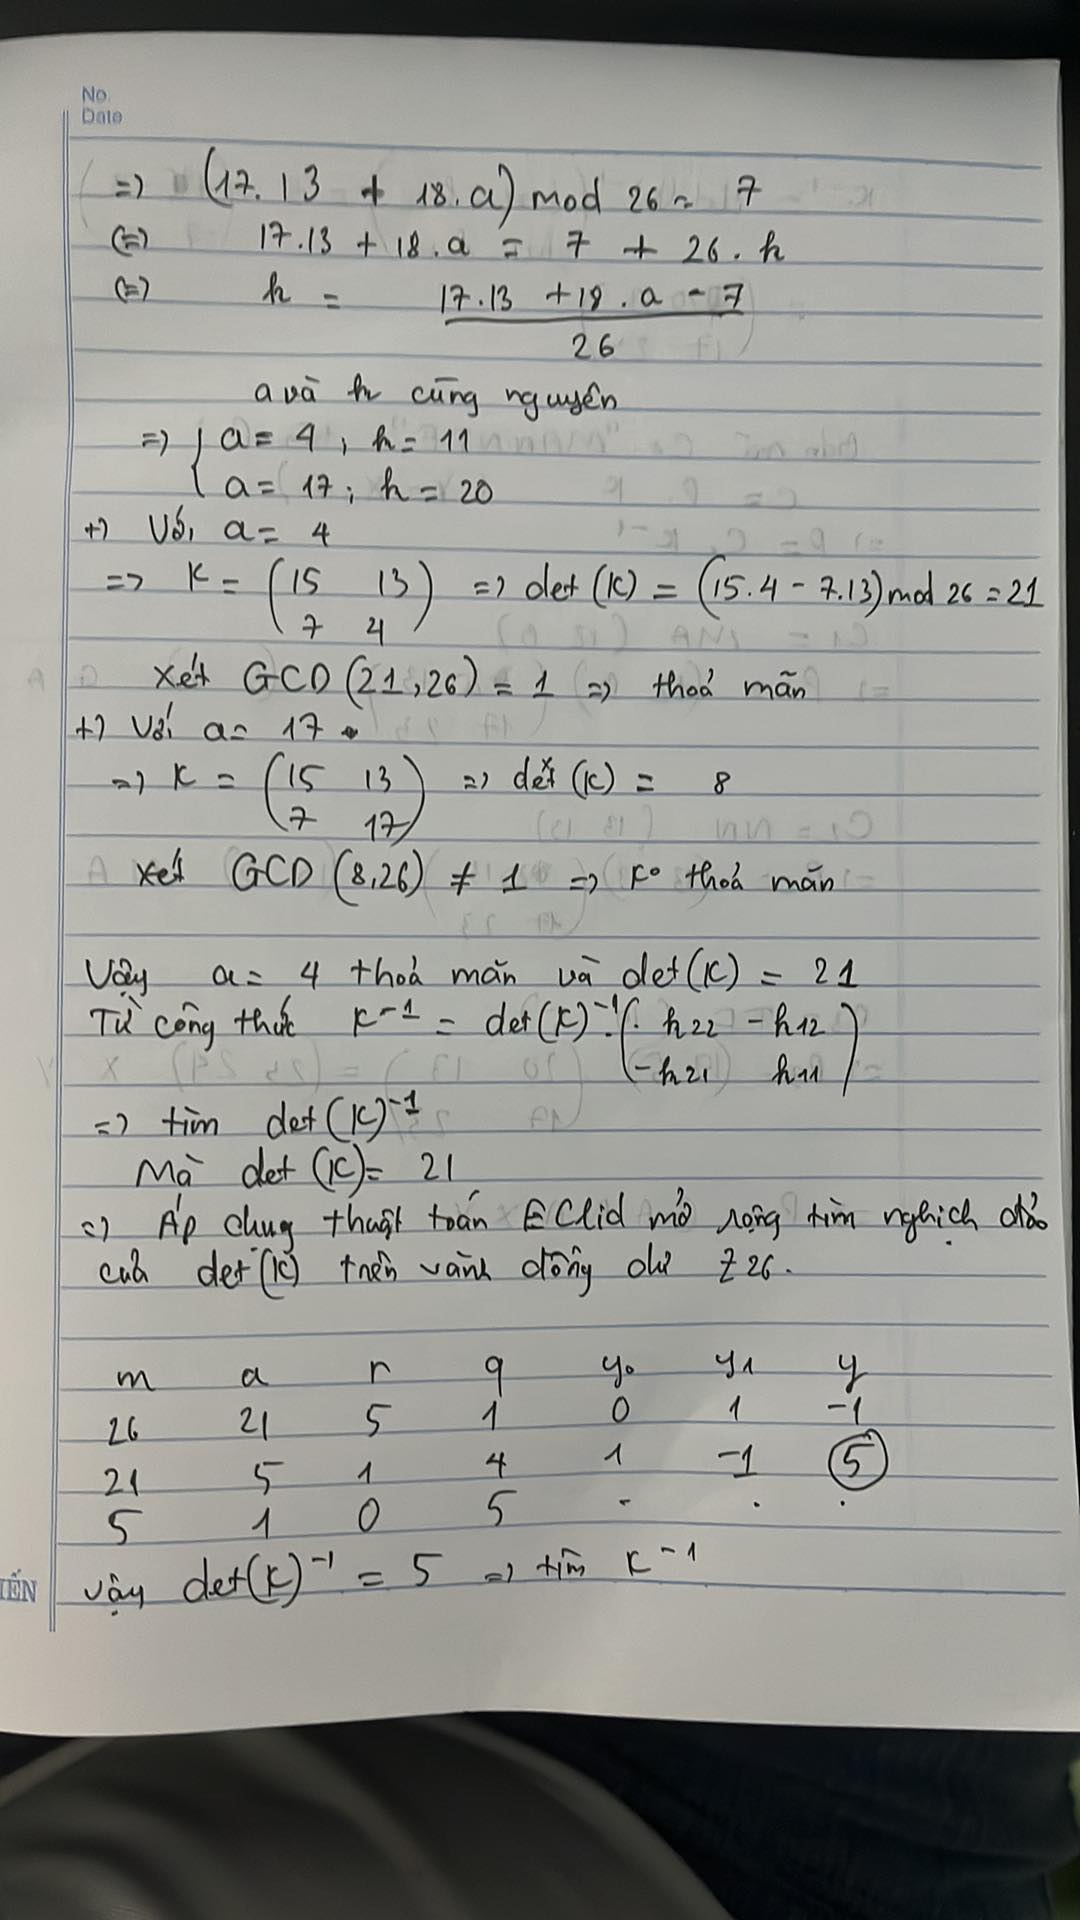 No
Date
=> (17.13 + 18.a) mod 26 = 7
(=) 17.13 + 18.a = 7 + 26.k
(=) k = 17.13 + 18.a - 7
26
a và k cũng nguyên
=> { a = 4, k = 11
a = 17; k = 20
+) Với a = 4
=> K = (15 13 => det(K) = (15.4 - 7.13) mod 26 = 21
7 4)
Xét GCD(21,26) = 1 => thoả mãn
+) Với a = 17
=> K = (15 13 => det(K) = 8
7 17)
xét GCD(8,26) ≠ 1 => K° thoả mãn
Vậy a = 4 thoả mãn và det(K) = 21
Từ công thức K^-1 = det(K)^-1.(k22 -k12
-k21 k11)
=> tìm det(K)^-1
Mà det(K) = 21
=) Áp dụng thuật toán EClid mở rộng tìm nghịch đảo
của det(K) trên vành đồng dư Z26.
m a r q y0 y1 y
26 21 5 1 0 1 -1
21 5 1 4 1 -1 5
5 1 0 5 - . .
vậy det(K)^-1 = 5 => tìm K^-1